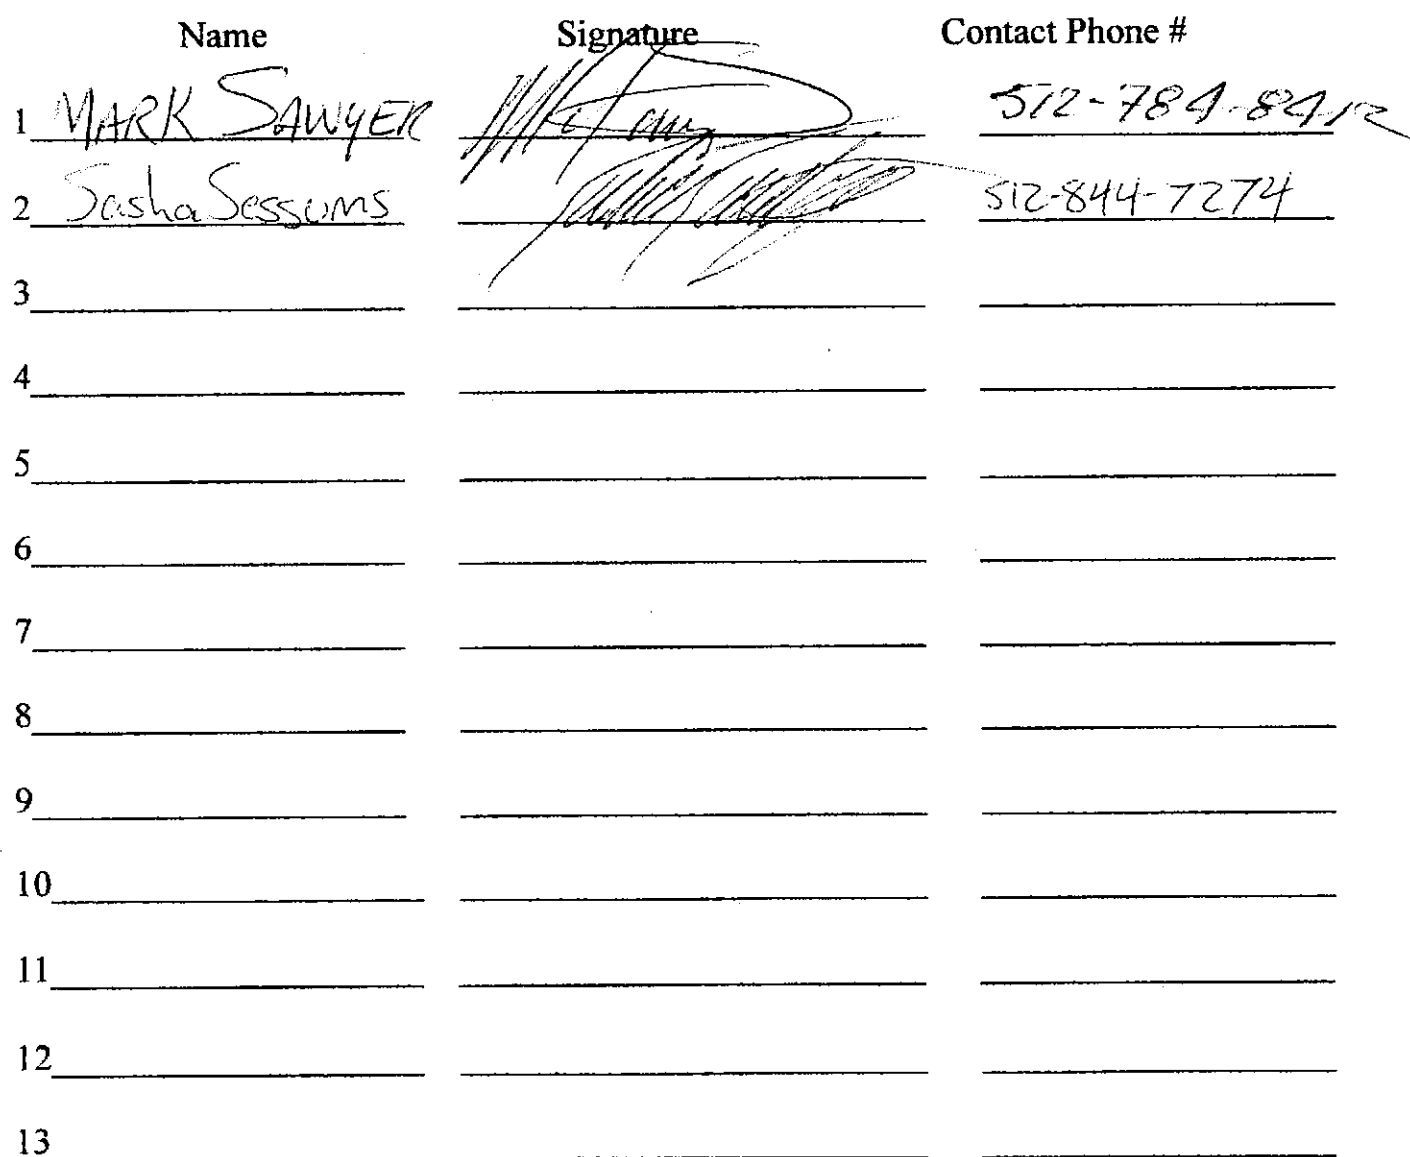 Name Signature Contact Phone #
1 MARK SAWYER 512-784-8412
2 Sasha Sessums 512-844-7274
3
4
5
6
7
8
9
10
11
12
13